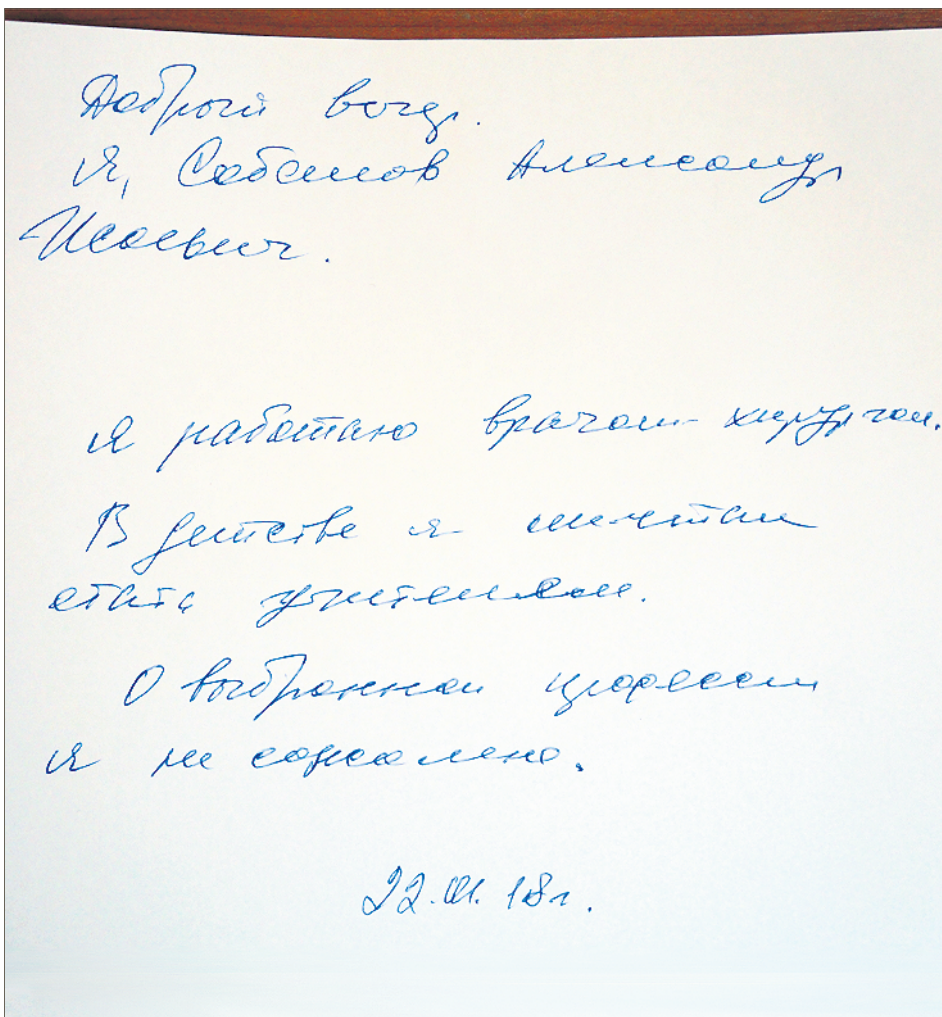 Добрый вечер.
Я, Александр
Исаевич.
Я работаю врачом-хирургом.
В детстве я мечтал
стать учителем.
О выбранной профессии
я не сожалею.
22.01.18г.